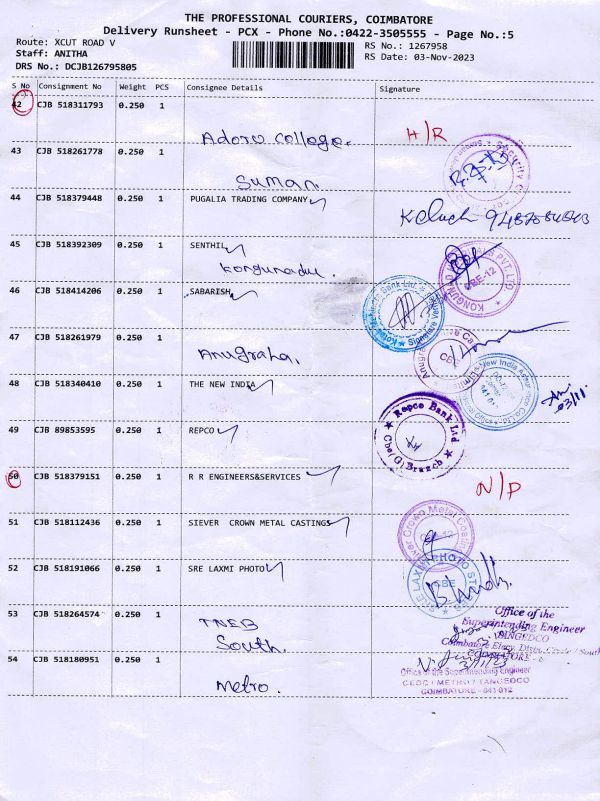 THE PROFESSIONAL COURIERS, COIMBATORE
Delivery Runsheet - PCX - Phone No.:0422-3505555 - Page No.:5
Route: XCUT ROAD V
RS No.: 1267958
Staff: ANITHA
RS Date: 03-Nov-2023
DRS No.: DCJB126795805
S No Consignment No Weight PCS Consignee Details Signature
42 CJB 518311793 0.250 1
Adoro College. H/R
43 CJB 518261778 0.250 1
Suman
44 CJB 518379448 0.250 1 PUGALIA TRADING COMPANY
45 CJB 518392309 0.250 1 SENTHIL
Kongunadu.
46 CJB 518414206 0.250 1 SABARISH
47 CJB 518261979 0.250 1
Anugraha.
48 CJB 518340410 0.250 1 THE NEW INDIA
03/11
49 CJB 89853595 0.250 1 REPCO
Repco Bank Ltd
Cbe(G) Branch
50 CJB 518379151 0.250 1 R R ENGINEERS&SERVICES
N/P
51 CJB 518112436 0.250 1 SIEVER CROWN METAL CASTINGS
52 CJB 518191066 0.250 1 SRE LAXMI PHOTO
53 CJB 518264574 0.250 1
TNEB
South.
Office of the
Superintending Engineer
TANGEDCO
54 CJB 518180951 0.250 1
Metro.
Office of the Superintending Engineer
CEDC / METRO / TANGEDCO
COIMBATORE - 641 012